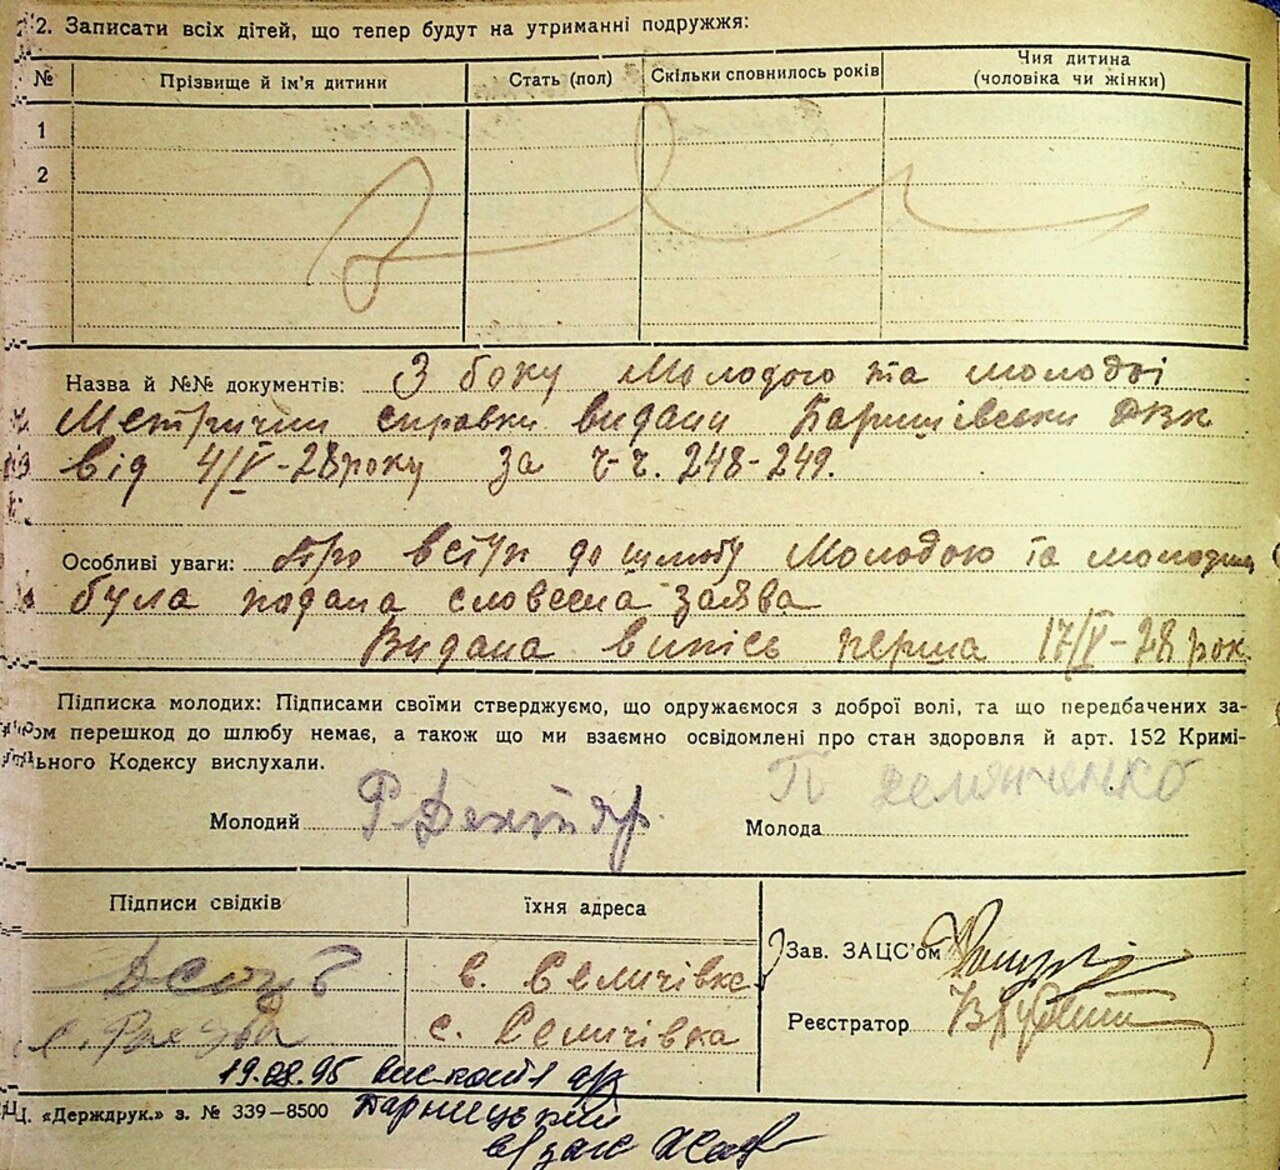 2. Записати всіх дітей, що тепер будут на утриманні подружжя:
№ Прізвище й ім'я дитини Стать (пол) Скільки сповнилось років Чия дитина (чоловіка чи жінки)
1
2
Назва й №№ документів: З боку Молодого та молодої
Метричні справки видани Баришівским РВК
від 4/V-28 року за ч-ч. 248-249.
Особливі уваги: Про вступ до шлюбу Молодою та молодим
була подана словесна заява
Видана випись перша 17/V-28 рок.
Підписка молодих: Підписами своїми стверджуємо, що одружаємося з доброї волі, та що передбачених за-
ом перешкод до шлюбу немає, а також що ми взаємно освідомлені про стан здоровля й арт. 152 Кримі-
льного Кодексу вислухали.
Молодий Молода П Демянченко
Підписи свідків їхня адреса
с. Селичівка
с. Селичівка
Зав. ЗАЦС'ом
Реєстратор
19.08.95
«Держдрук.» з. № 339—8500